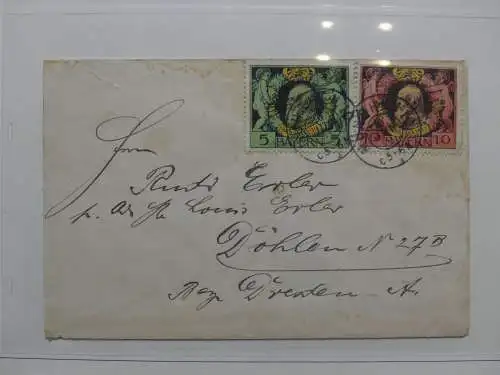 5 BAYERN 5 10 BAYERN 10
Herrn
Erler
Louis Erler
Döhlen N 27B
Bez. Dresden - A.